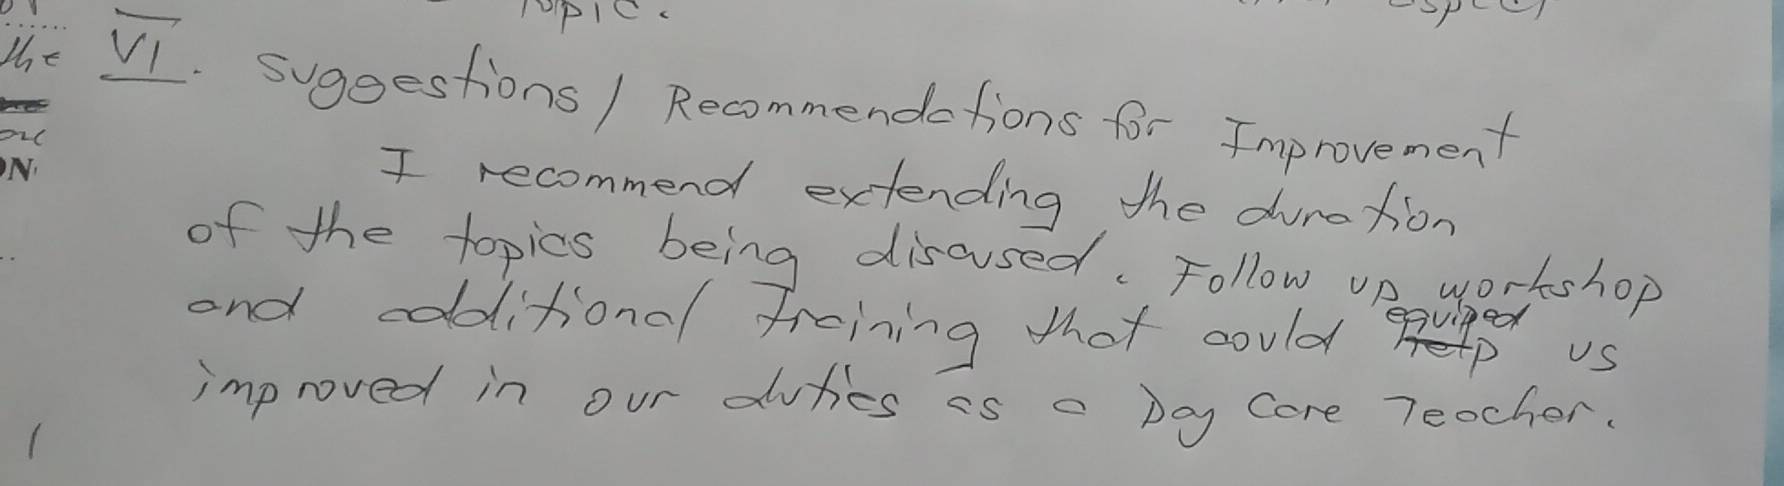 Topic.
the VI. Suggestions / Recommendations for Improvement
I recommend extending the duration
of the topics being discused. Follow up workshop
and additional training that could equiped us
improved in our duties as a Day Care Teacher.